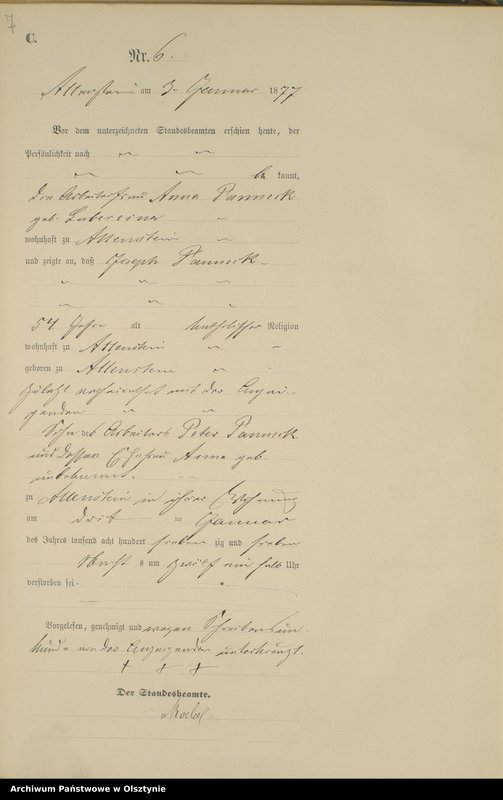 7
C.
Nr. 6.
Allenstein am 3. Januar 1877
Vor dem unterzeichneten Standesbeamten erschien heute, der
Persönlichkeit nach
be kannt,
die Arbeiterfrau Anna Panneck
geb.
wohnhaft zu Allenstein
und zeigte an, daß Joseph Panneck
54 Jahre alt katholischer Religion
wohnhaft zu Allenstein
geboren zu Allenstein
zuletzt verheirathet mit der Anzei-
genden
Sohn des Arbeiters Peter Panneck
und dessen Ehefrau Anna geb.
unbekannt.
zu Allenstein in ihrer Wohnung
am drit ten Januar
des Jahres tausend acht hundert sieben zig und sieben
Nacht s um zwölf ein halb Uhr
verstorben sei
Vorgelesen, genehmigt und wegen Schreibensun-
kunde von der Anzeigenden unterkreuzt.
+ + +
Der Standesbeamte.
Archiwum Państwowe w Olsztynie